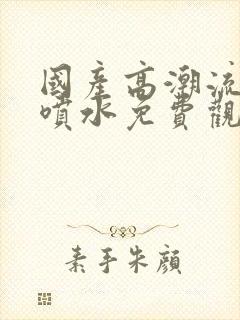 國產高潮流
噴水免費觀
素手朱顏